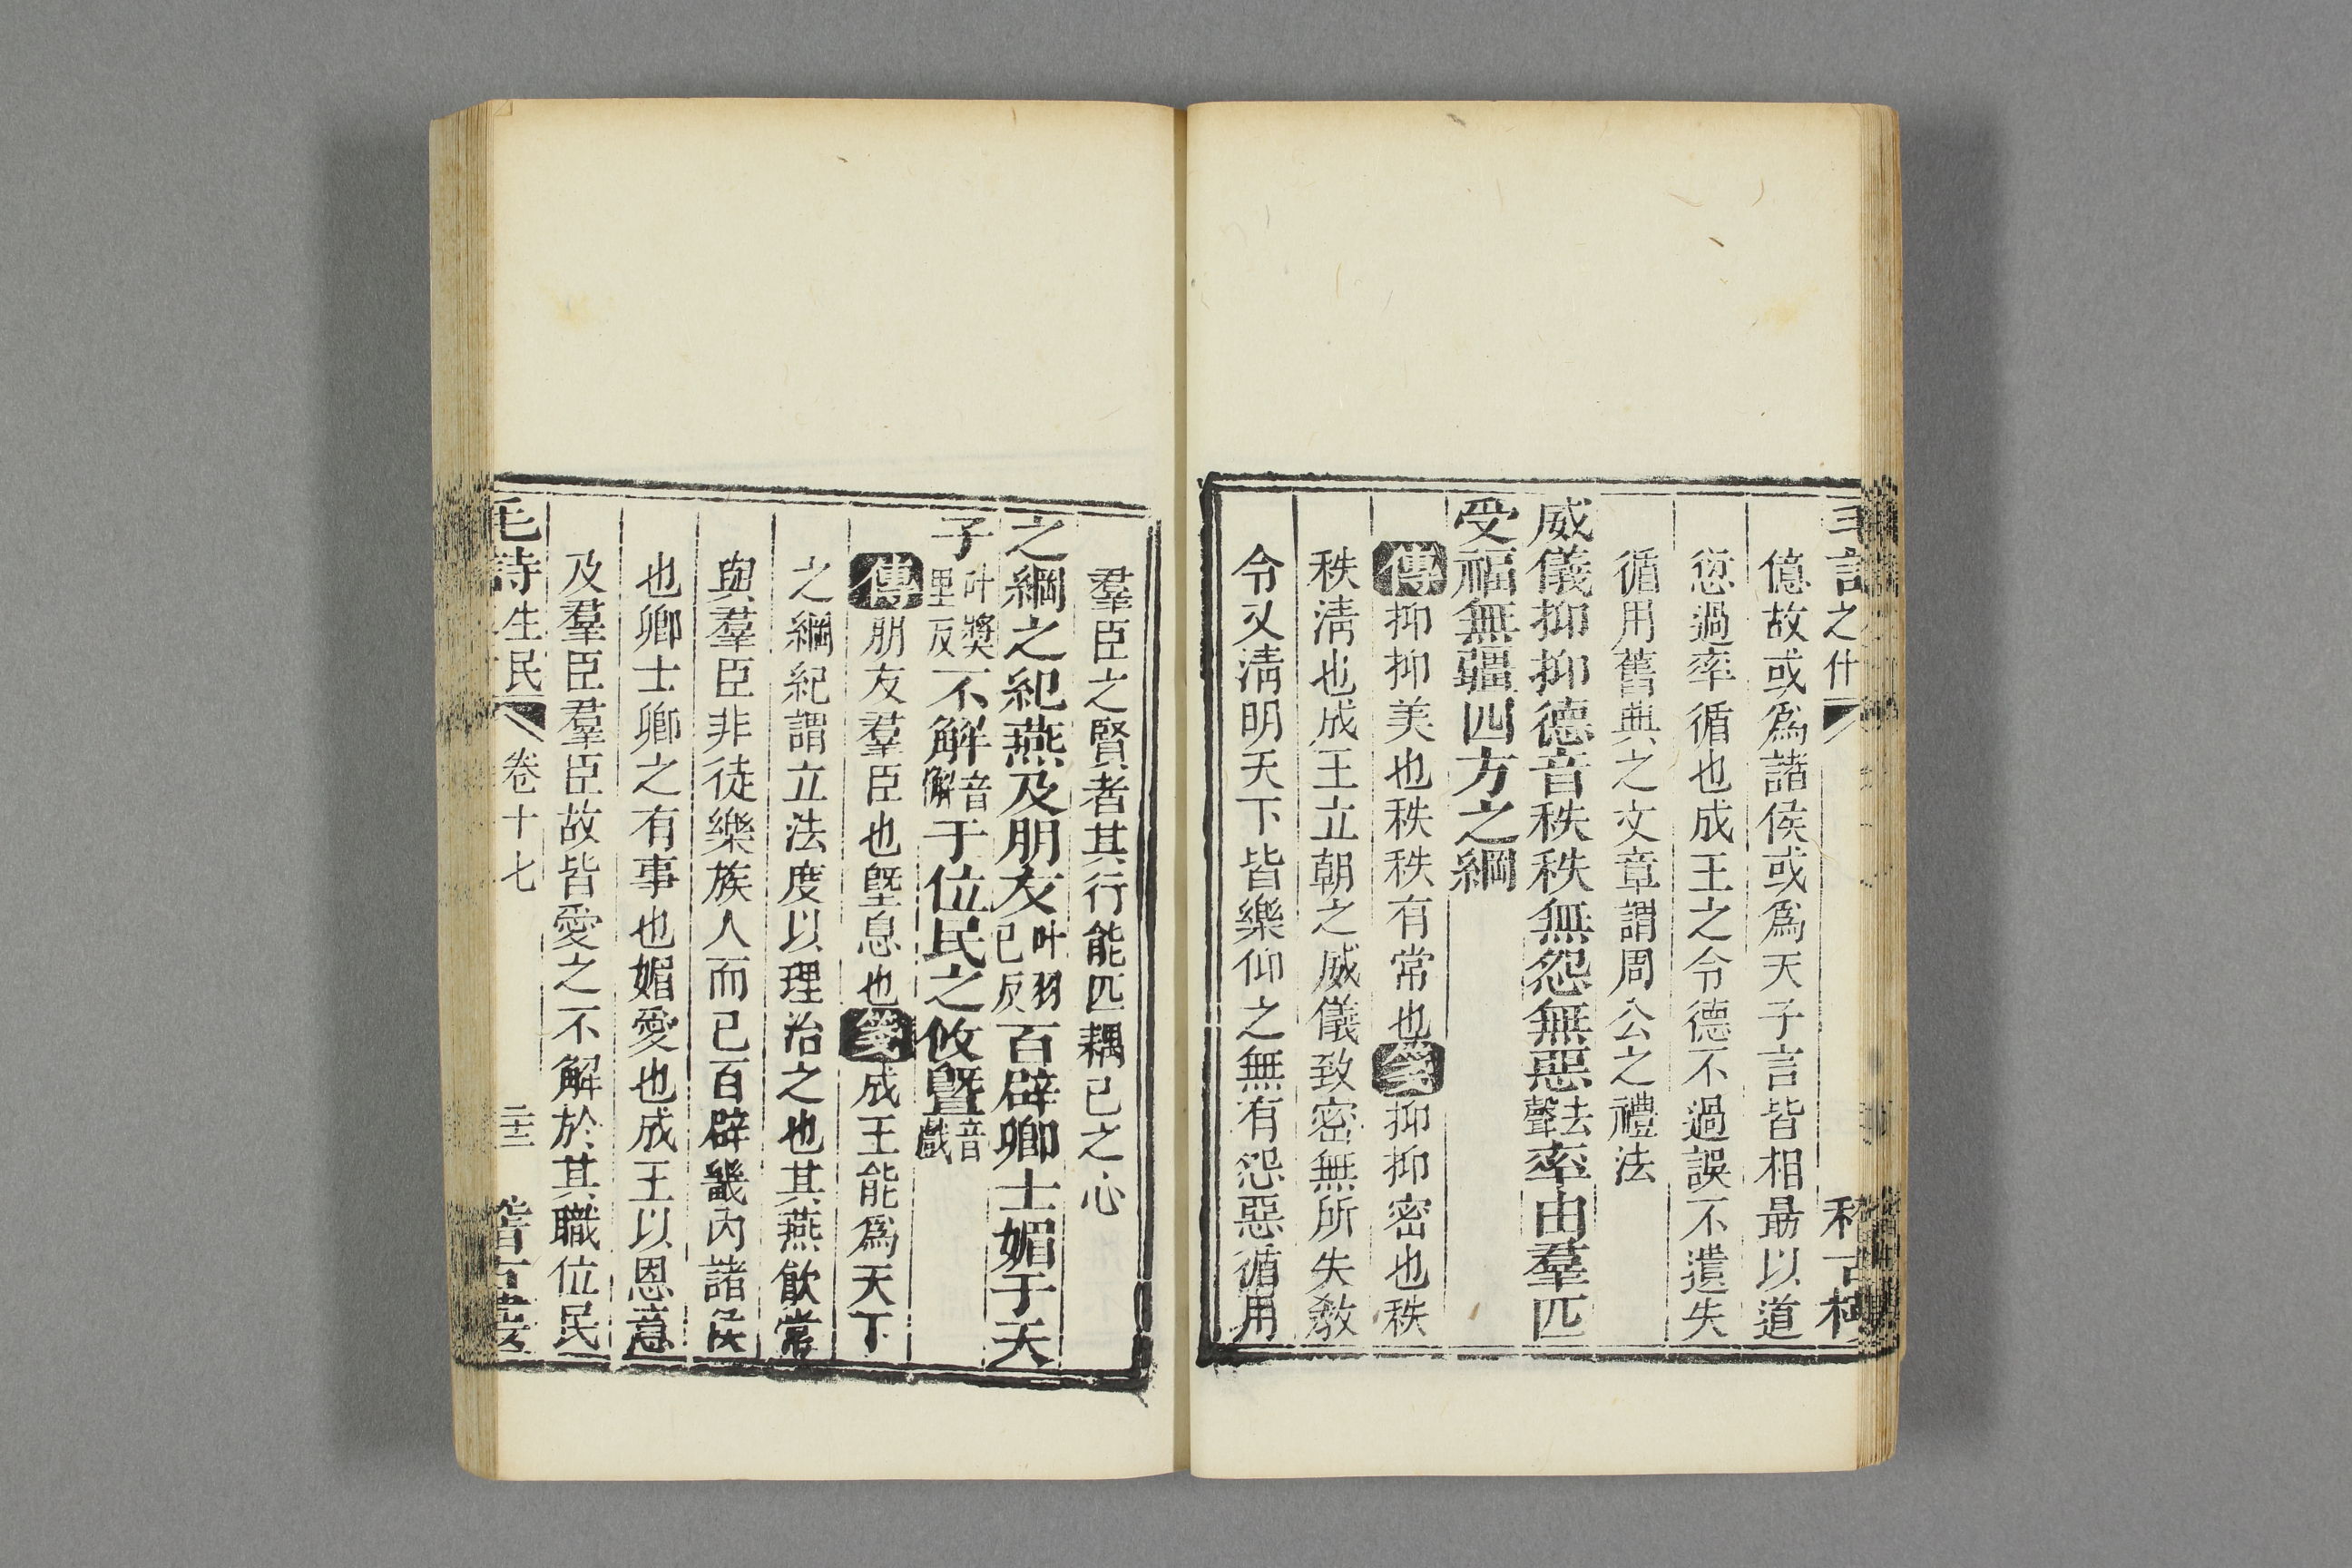 之什
億故或爲諸侯或爲天子言皆相勗以道
愆過率循也成王之令德不過誤不遺失
循用舊典之文章謂周公之禮法
威儀抑抑德音秩秩無怨無惡法聲率由羣匹
受福無疆四方之綱
傳抑抑美也秩秩有常也箋抑抑密也秩
秩淸也成王立朝之威儀致密無所失敎
令又淸明天下皆樂仰之無有怨惡循用
羣臣之賢者其行能匹耦己之心
之綱之紀燕及朋友叶羽已反百辟卿士媚于天
子叶奬里反不解音懈于位民之攸墍音戲
傳朋友羣臣也墍息也箋成王能爲天下
之綱紀謂立法度以理治之也其燕飮常
與羣臣非徒樂族人而已百辟畿內諸侯
也卿士卿之有事也媚愛也成王以恩意
及羣臣羣臣故皆愛之不解於其職位民
毛詩生民 卷十七 二十三